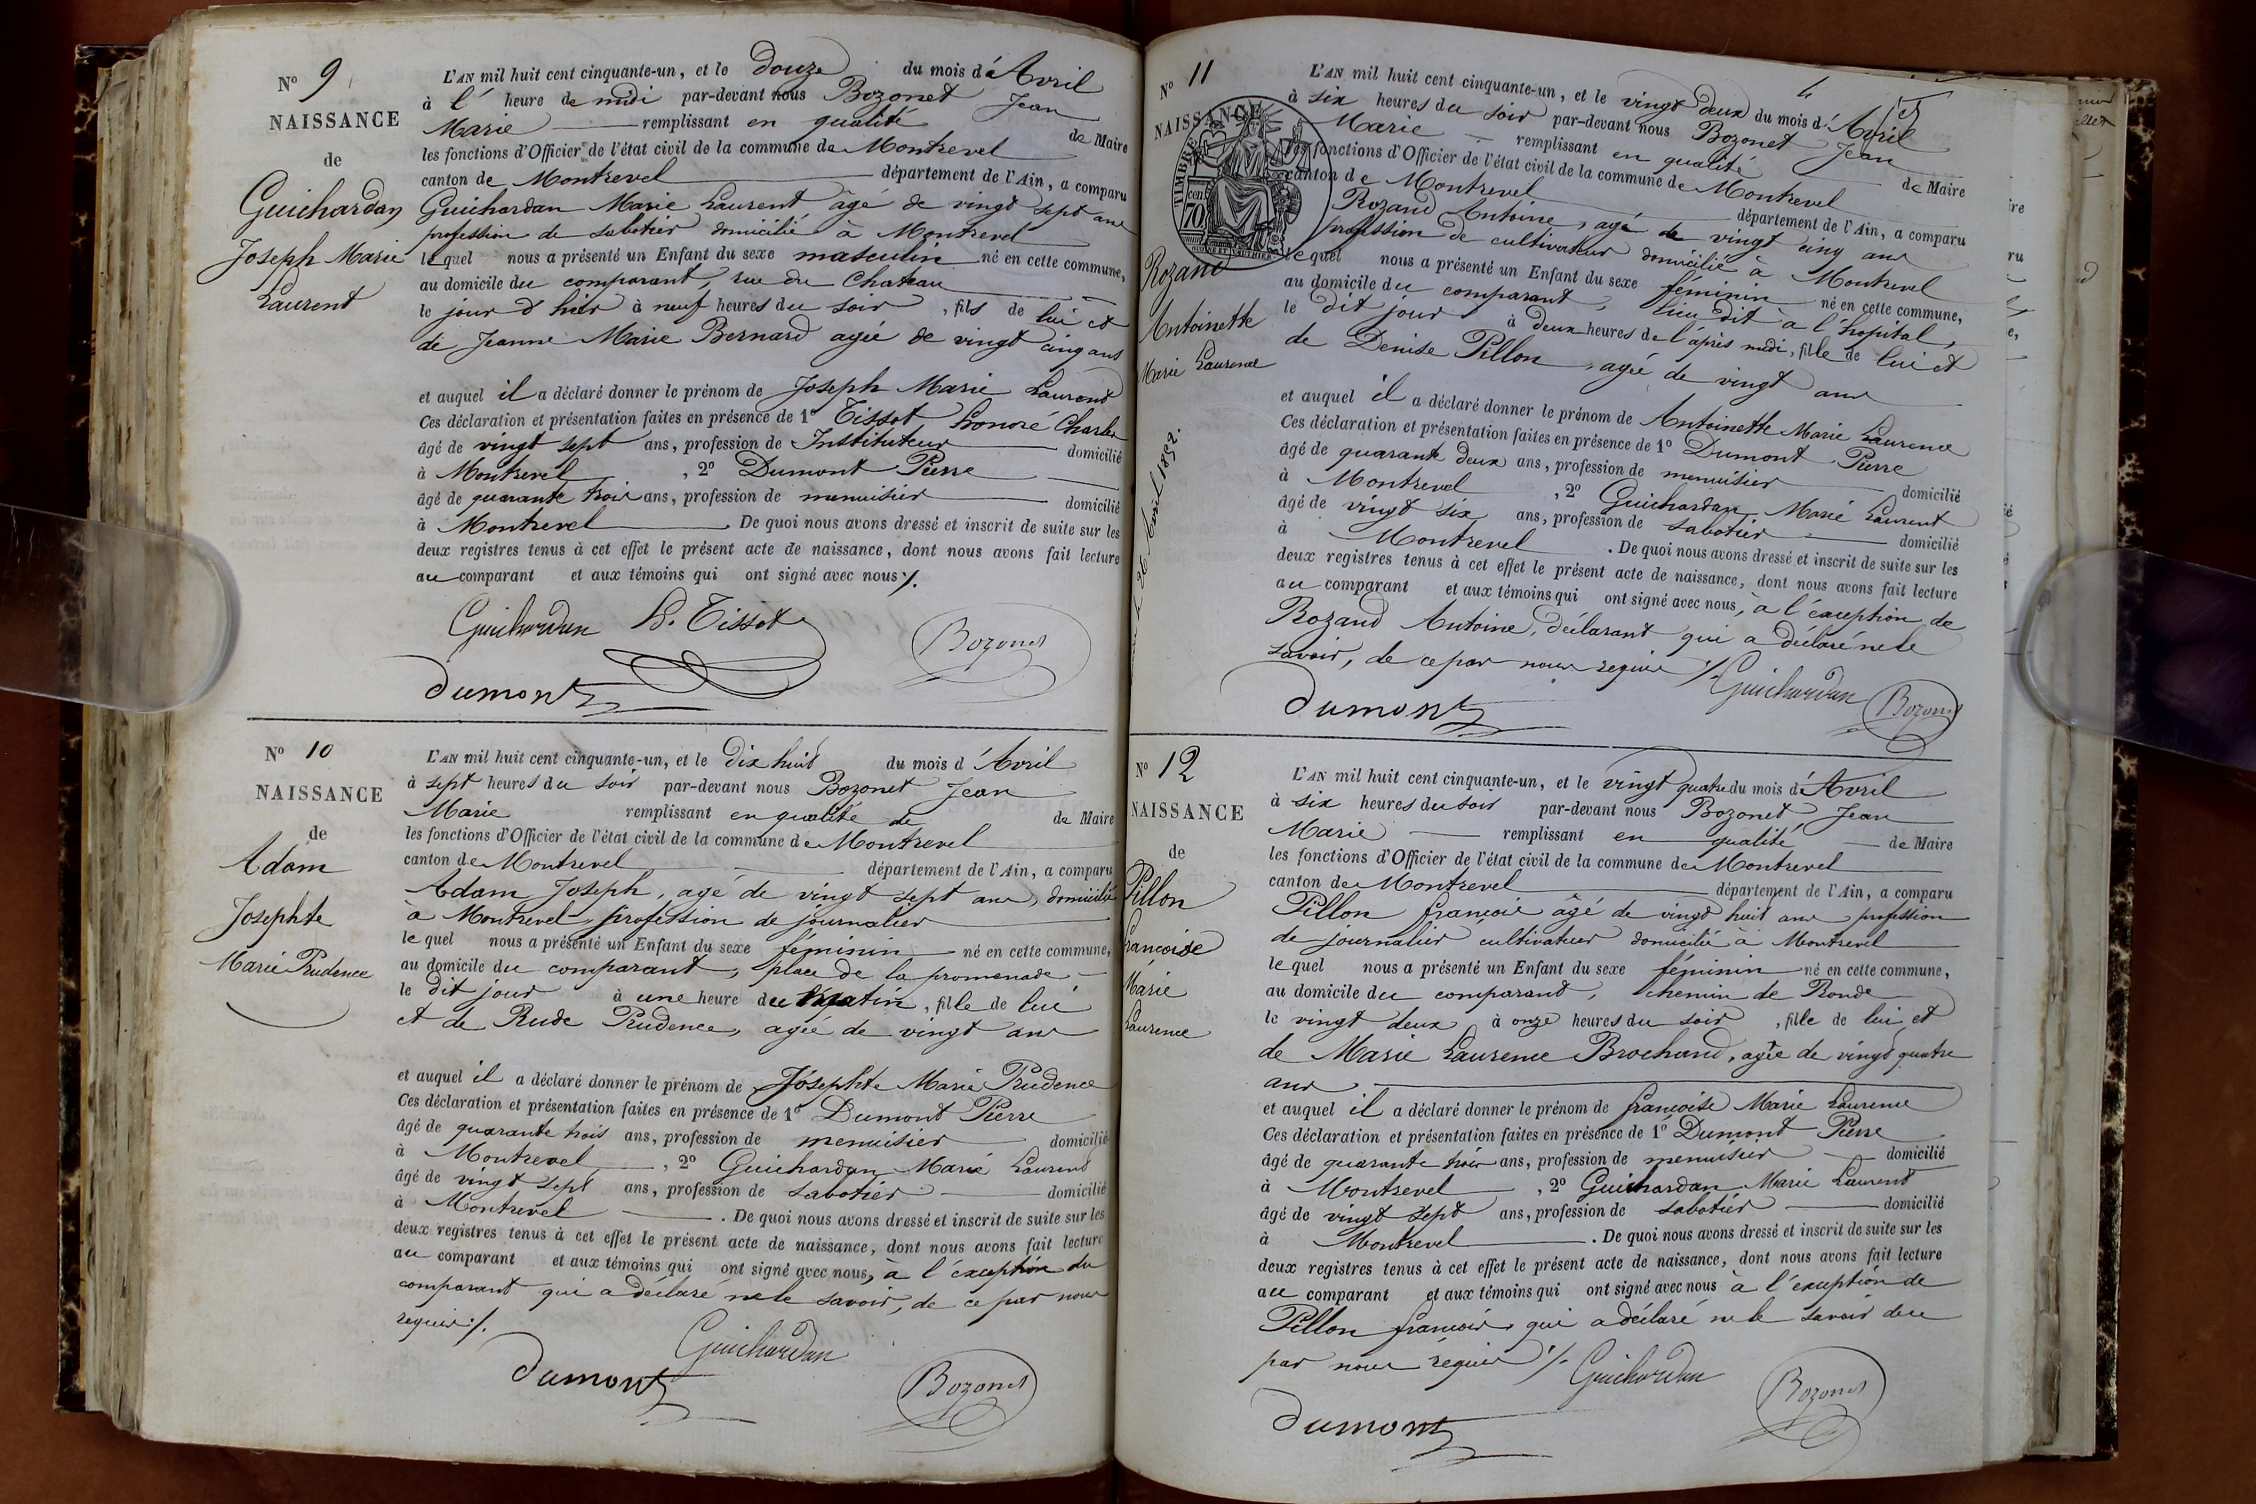 N° 9
NAISSANCE
de
Guichardan
Joseph Marie
Laurent
L'AN mil huit cent cinquante-un, et le douze du mois d'Avril
à l' heure de midi par-devant nous Bozonet Jean
Marie remplissant en qualité de Maire
les fonctions d'Officier de l'état civil de la commune de Montrevel
canton de Montrevel département de l'Ain, a comparu
Guichardan Marie Laurent âgé de vingt sept ans
profession de sabotier domicilié à Montrevel
lequel nous a présenté un Enfant du sexe masculin né en cette commune,
au domicile du comparant, rue du Chateau
le jour d'hier à neuf heures du soir, fils de lui et
de Jeanne Marie Bernard agée de vingt cinq ans
et auquel il a déclaré donner le prénom de Joseph Marie Laurent
Ces déclaration et présentation faites en présence de 1° Tissot honoré Charles
âgé de vingt sept ans, profession de Instituteur domicilié
à Montrevel, 2° Dumont Pierre
âgé de quarante trois ans, profession de menuisier domicilié
à Montrevel. De quoi nous avons dressé et inscrit de suite sur les
deux registres tenus à cet effet le présent acte de naissance, dont nous avons fait lecture
au comparant et aux témoins qui ont signé avec nous ./.
Guichardan h. Tissot
Bozonet
dumont
N° 10
NAISSANCE
de
Adam
Josephte
Marie Prudence
L'AN mil huit cent cinquante-un, et le dix huit du mois d'Avril
à sept heures du soir par-devant nous Bozonet Jean
Marie remplissant en qualité de de Maire
les fonctions d'Officier de l'état civil de la commune de Montrevel
canton de Montrevel département de l'Ain, a comparu
Adam Joseph, agé de vingt sept ans, domicilié
à Montrevel, profession de journalier
lequel nous a présenté un Enfant du sexe féminin né en cette commune,
au domicile du comparant, place de la promenade
le dit jour à une heure du matin, fille de lui
et de Rude Prudence, agée de vingt ans
et auquel il a déclaré donner le prénom de Josephte Marie Prudence
Ces déclaration et présentation faites en présence de 1° Dumont Pierre
âgé de quarante trois ans, profession de menuisier domicilié
à Montrevel, 2° Guichardan Marie Laurent
âgé de vingt sept ans, profession de sabotier domicilié
à Montrevel. De quoi nous avons dressé et inscrit de suite sur les
deux registres tenus à cet effet le présent acte de naissance, dont nous avons fait lecture
au comparant et aux témoins qui ont signé avec nous, à l'exception du
comparant qui a déclaré ne le savoir, de ce par nous
requis ./.
Guichardan
dumont
Bozonet
N° 11
NAISSANCE
TIMBRE
70 cen
Rozand
Antoinette
Marie Laurence
26 Avril 1852.
L'AN mil huit cent cinquante-un, et le vingt deux du mois d'Avril
à six heures du soir par-devant nous Bozonet Jean
Marie remplissant en qualité de Maire
les fonctions d'Officier de l'état civil de la commune de Montrevel
canton de Montrevel département de l'Ain, a comparu
Rozand Antoine, agé de vingt cinq ans
profession de cultivateur domicilié à Montrevel
lequel nous a présenté un Enfant du sexe féminin né en cette commune,
au domicile du comparant, lieu dit à l'hopital,
le dit jour à deux heures de l'après midi, fille de lui et
de Denise Pillon, agée de vingt ans
et auquel il a déclaré donner le prénom de Antoinette Marie Laurence
Ces déclaration et présentation faites en présence de 1° Dumont Pierre
âgé de quarante deux ans, profession de menuisier domicilié
à Montrevel, 2° Guichardan Marie Laurent
âgé de vingt six ans, profession de sabotier domicilié
à Montrevel. De quoi nous avons dressé et inscrit de suite sur les
deux registres tenus à cet effet le présent acte de naissance, dont nous avons fait lecture
au comparant et aux témoins qui ont signé avec nous, à l'exception de
Rozand Antoine, déclarant qui a déclaré ne le
savoir, de ce par nous requis ./.
Guichardan
Bozonet
dumont
N° 12
NAISSANCE
de
Pillon
francoise
Marie
Laurence
L'AN mil huit cent cinquante-un, et le vingt quatre du mois d'Avril
à six heures du soir par-devant nous Bozonet Jean
Marie remplissant en qualité de Maire
les fonctions d'Officier de l'état civil de la commune de Montrevel
canton de Montrevel département de l'Ain, a comparu
Pillon françois âgé de vingt huit ans profession
de journalier cultivateur domicilié à Montrevel
lequel nous a présenté un Enfant du sexe féminin né en cette commune,
au domicile du comparant, chemin de Ronde
le vingt deux à onze heures du soir, fille de lui et
de Marie Laurence Brochand, agée de vingt quatre
ans
et auquel il a déclaré donner le prénom de françoise Marie Laurence
Ces déclaration et présentation faites en présence de 1° Dumont Pierre
âgé de quarante trois ans, profession de menuisier domicilié
à Montrevel, 2° Guichardan Marie Laurent
âgé de vingt sept ans, profession de sabotier domicilié
à Montrevel. De quoi nous avons dressé et inscrit de suite sur les
deux registres tenus à cet effet le présent acte de naissance, dont nous avons fait lecture
au comparant et aux témoins qui ont signé avec nous à l'exception de
Pillon francois, qui a déclaré ne le savoir de ce
par nous requis ./.
Guichardan
Bozonet
dumont